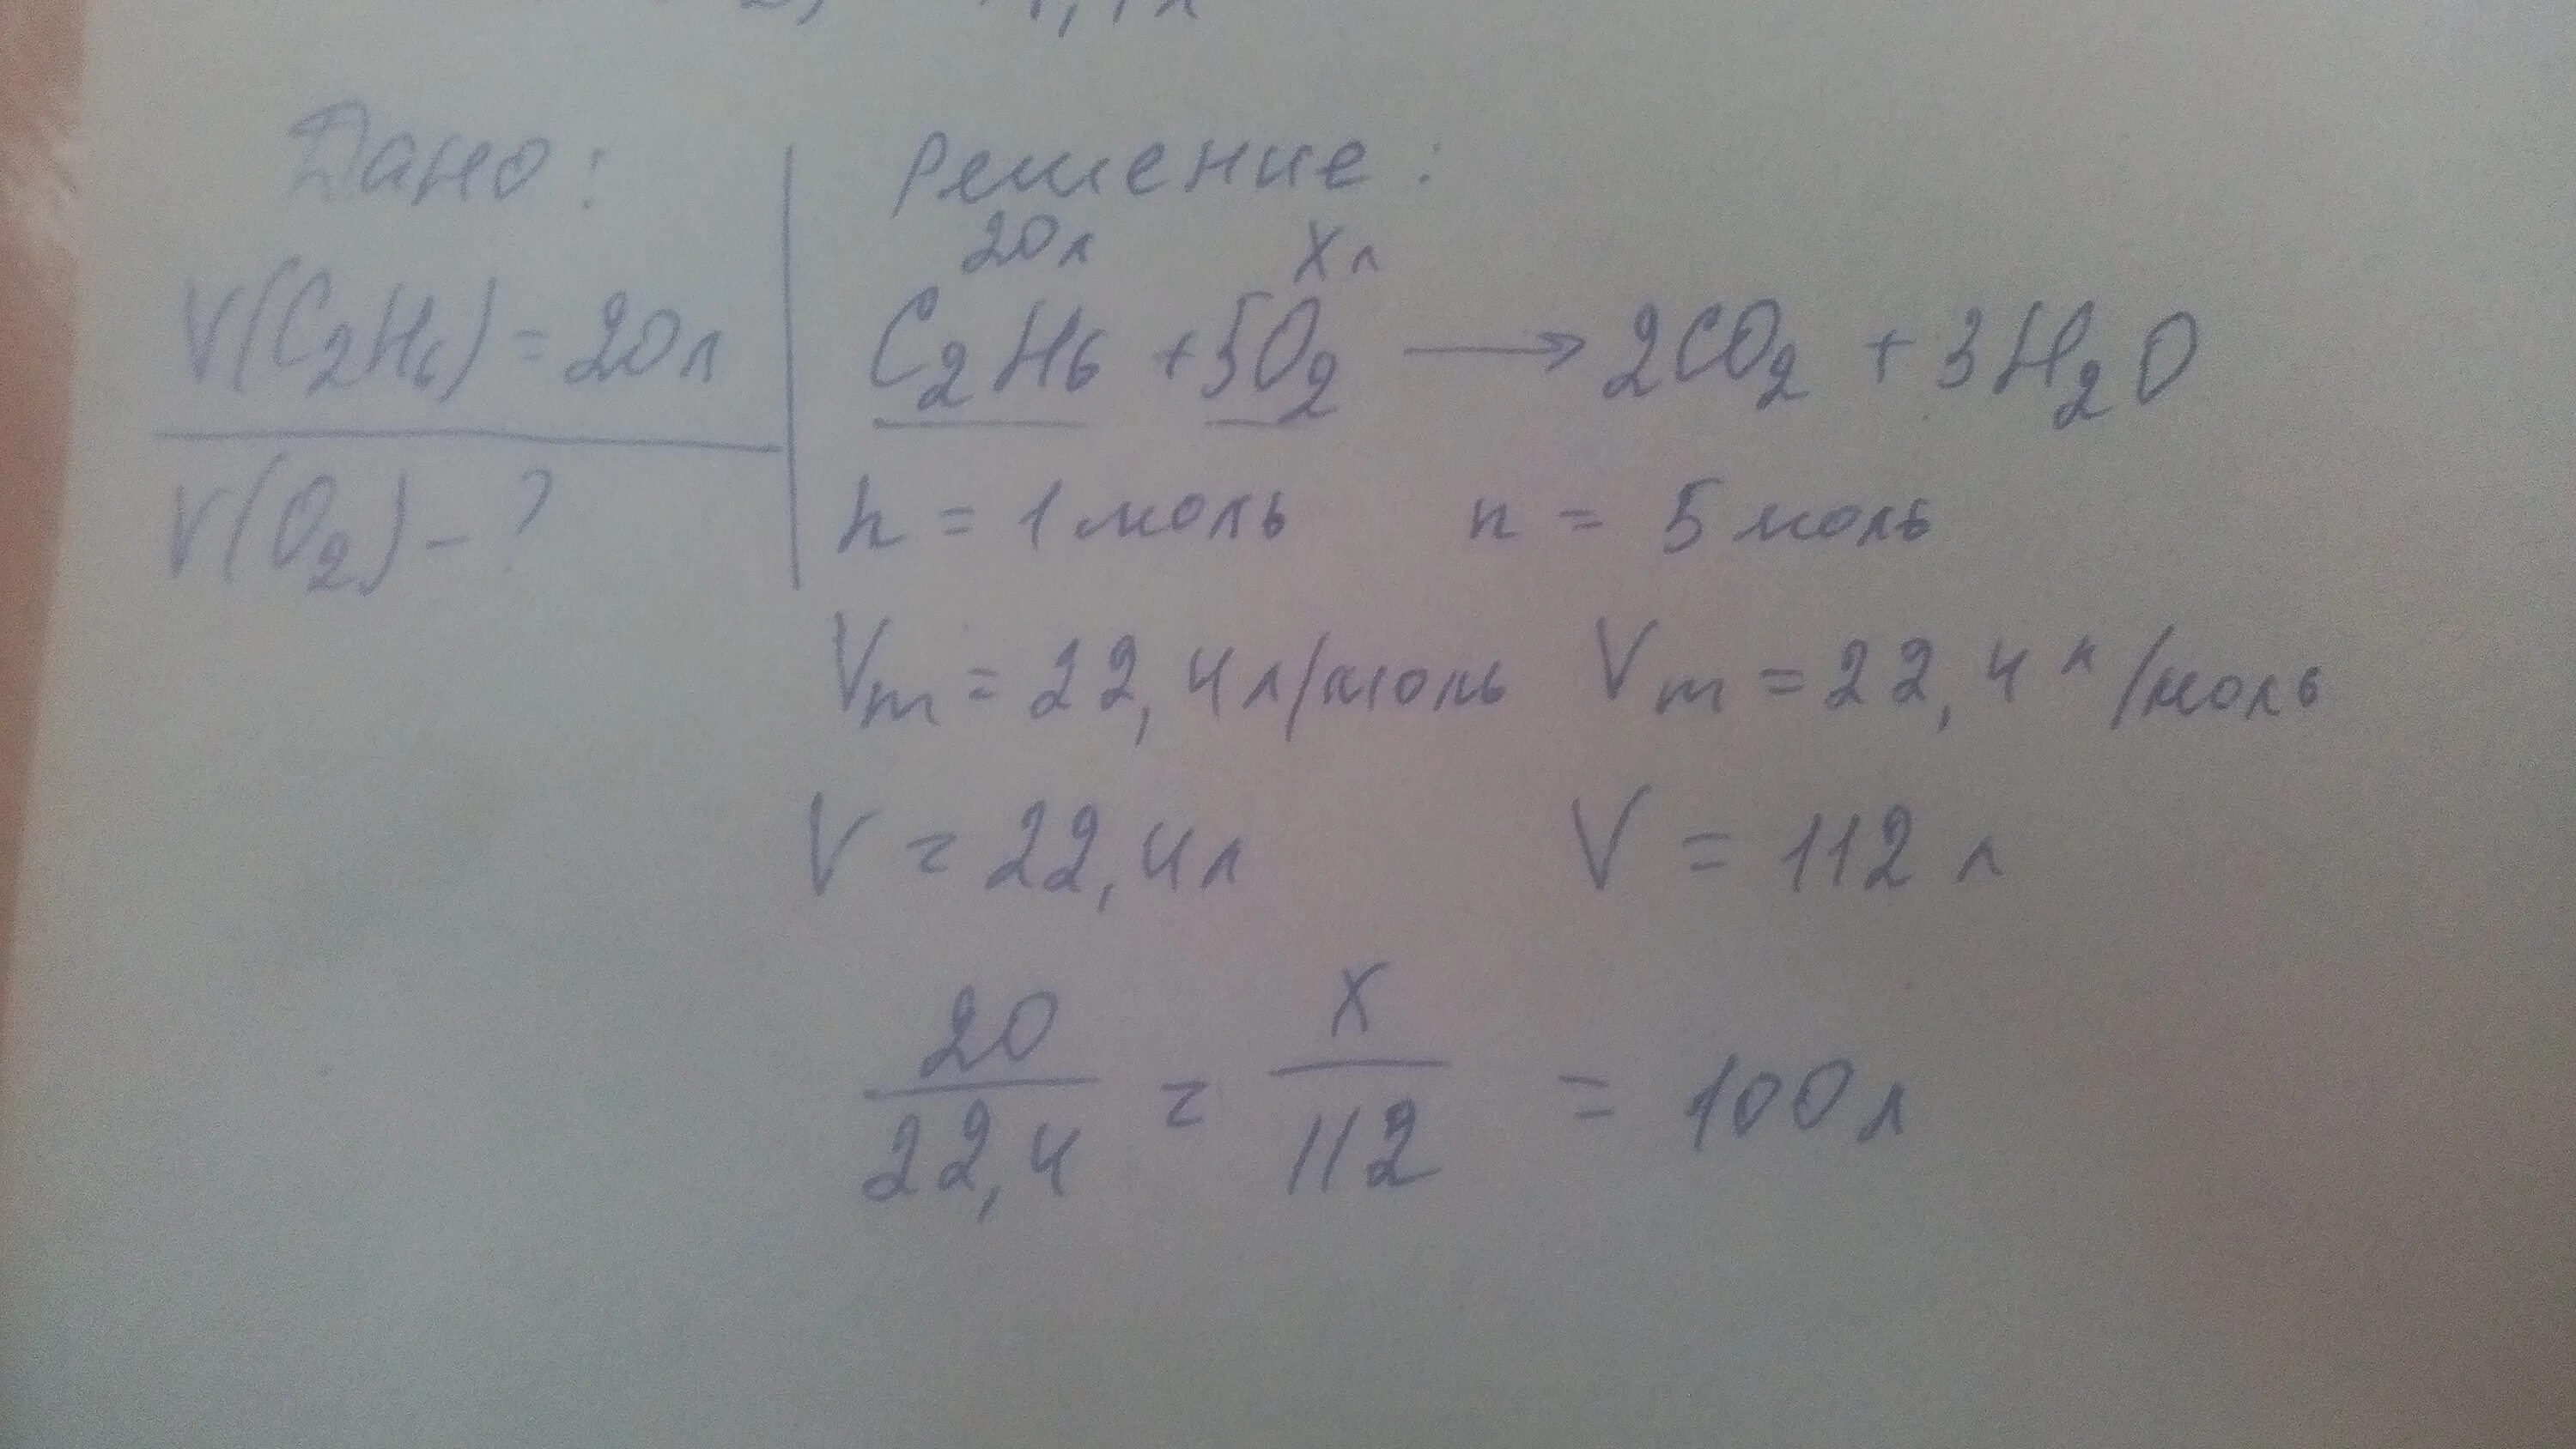 Дано:
V(C₂H₆) = 20л
V(O₂) – ?
Решение:
20л Xл
C₂H₆ + 5O₂ → 2CO₂ + 3H₂O
n = 1 моль n = 5 моль
Vm = 22,4 л/моль Vm = 22,4 л/моль
V = 22,4л V = 112 л
20/22,4 = X/112 = 100л